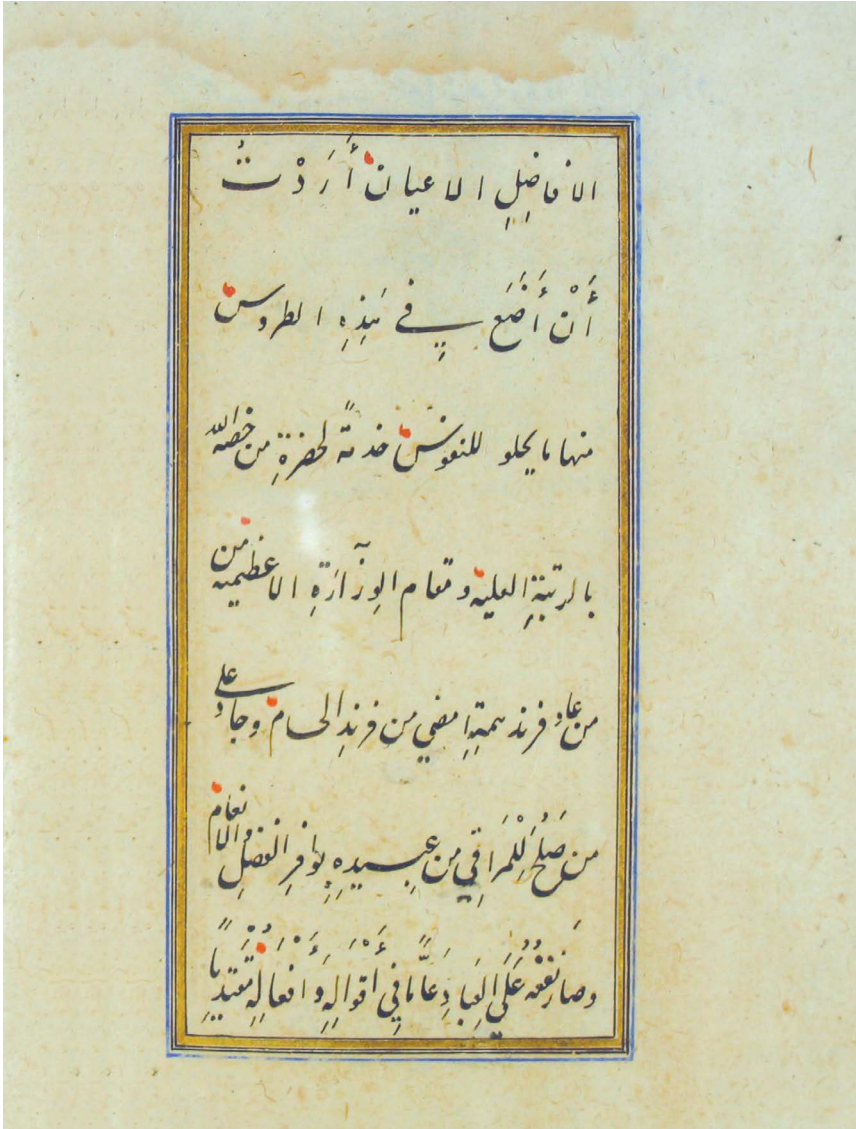 الافاضِلِ الاعيان أَرَدْتُ
أَنْ أَضَعَ فِي هَذِهِ الطروس
منها ما يحلو للنفوس خدمةً لحضرةِ من خصه الله
بالرتبةِ العليه ومقام الوِزٰارَةِ الاعظميه من
من عاد فرند سمتِهِ امضي من فرندِ الحسام وجاد على
من صَلُحَ لِلْمَرَاقِي من عبيدِهِ بوافِرِ الفضلِ والانعام
وصَارَ نَفْعُهُ عَلَي العِبادِ عَامًّا فِي أَقْوَالِهِ وَأَفْعَالِهِ مُقْتَدِيًا